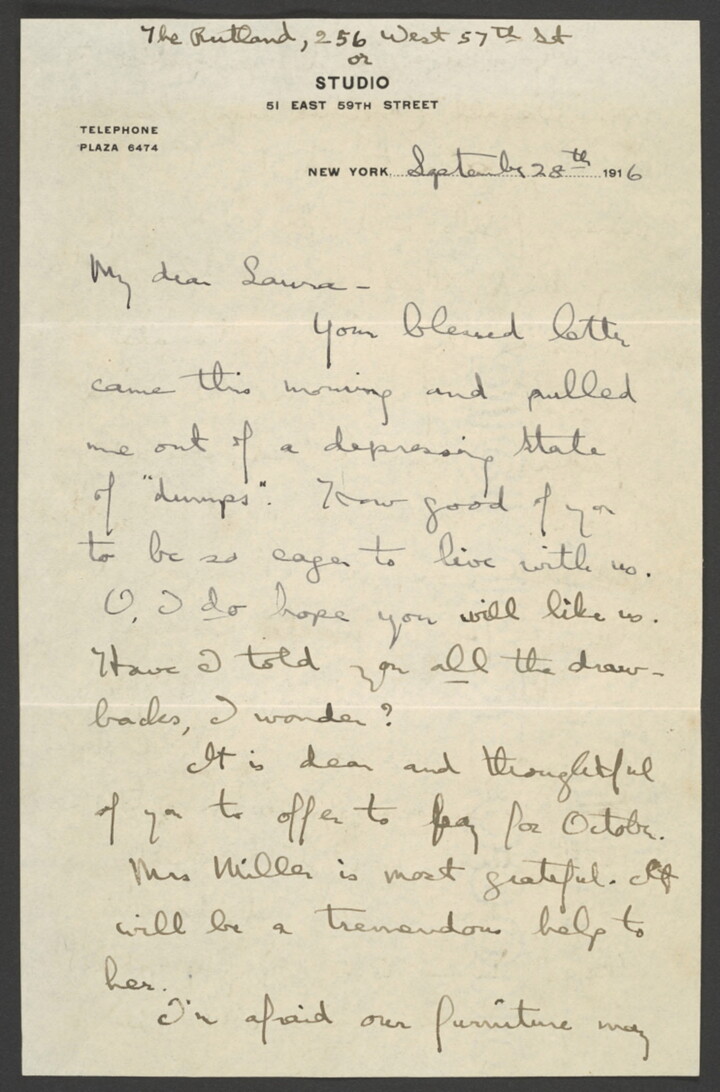 The Rutland, 256 West 57th St
or
STUDIO
51 EAST 59TH STREET
TELEPHONE
PLAZA 6474
NEW YORK September 28th 1916
My dear Laura -
Your blessed letter
came this morning and pulled
me out of a depressing state
of "dumps". How good of you
to be so eager to live with us.
O, I do hope you will like us.
Have I told you all the draw-
backs, I wonder?
It is dear and thoughtful
of you to offer to pay for October.
Mrs Miller is most grateful. It
will be a tremendous help to
her.
I'm afraid our furniture may